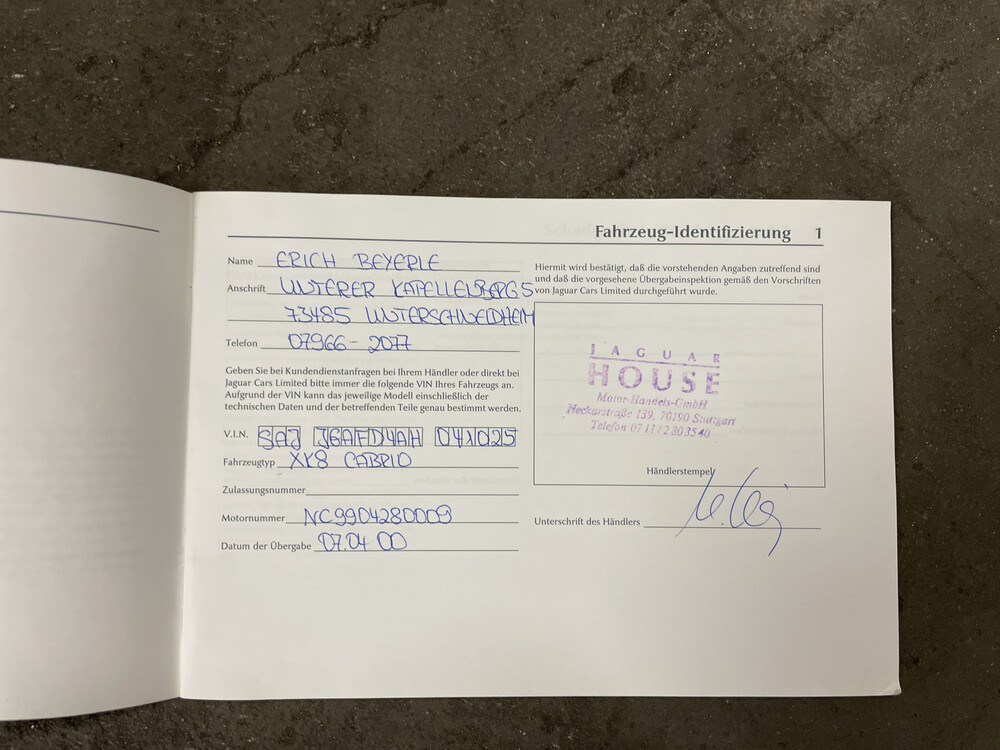 Fahrzeug-Identifizierung 1
Name ERICH BEYERLE
Anschrift UNTERER KAPELLENBERG 5
73485 UNTERSCHNEIDHEIM
Telefon 07966-2077
Geben Sie bei Kundendienstanfragen bei Ihrem Händler oder direkt bei
Jaguar Cars Limited bitte immer die folgende VIN Ihres Fahrzeugs an.
Aufgrund der VIN kann das jeweilige Modell einschließlich der
technischen Daten und der betreffenden Teile genau bestimmt werden.
V.I.N. SAJ JGAFD4AH 041025
Fahrzeugtyp XK8 CABRIO
Zulassungsnummer
Motornummer NC9904280009
Datum der Übergabe 07.04 00
Hiermit wird bestätigt, daß die vorstehenden Angaben zutreffend sind
und daß die vorgesehene Übergabeinspektion gemäß den Vorschriften
von Jaguar Cars Limited durchgeführt wurde.
JAGUAR
HOUSE
Motor-Handels-GmbH
Neckarstraße 139, 70190 Stuttgart
Telefon 0711/2803540
Händlerstempel
Unterschrift des Händlers